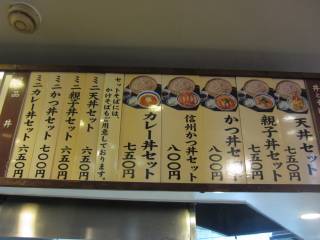 天丼セット 七五〇
親子丼セット 七五〇
かつ丼セット 八〇〇
信州かつ丼セット 八〇〇
カレー丼セット 七五〇
セットそばには、
かけそばもご用意しております。
ミニ天丼セット 六五〇
ミニ親子丼セット 六五〇
ミニかつ丼セット 七〇〇
ミニカレー丼セット 六五〇
品
丼